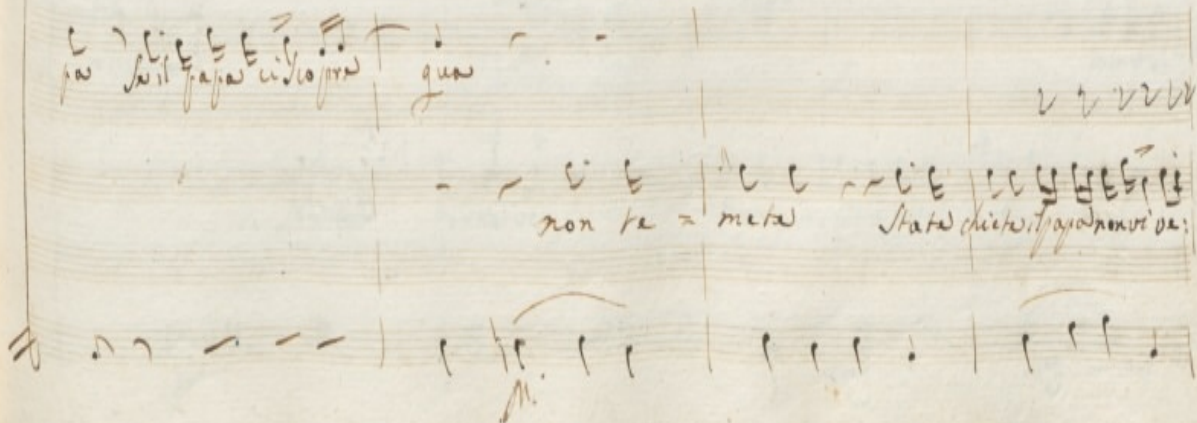 pa se il papa ci scopre qua
non te = mete state chiete il papa non vi ve: